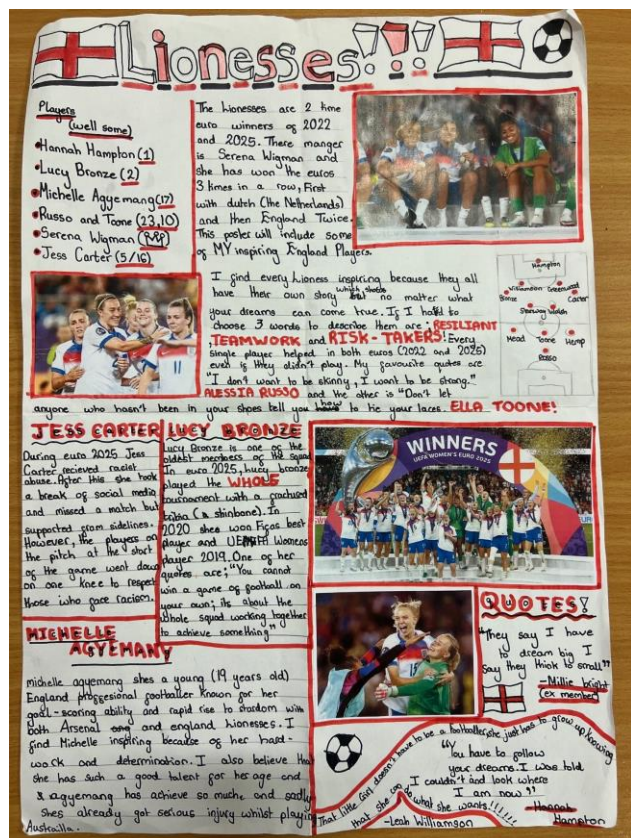 Lionesses!!!
Players
(well some)
Hannah Hampton (1)
Lucy Bronze (2)
Michelle Aggyemang (17)
Russo and Toone (23,10)
Serena Wigman
Jess Carter (5/16)
The Lionesses are 2 time
euro winners of 2022
and 2025. There manger
is Serena Wigman and
she has won the euros
3 times in a row, First
with dutch (the Netherlands)
and then England Twice.
This poster will include some
of MY inspiring England Players.
I find every Lioness inspiring because they all
have their own story which shows no matter what
your dreams can come true. If I had to
choose 3 words to describe them are: RESILIANT
, TEAMWORK and RISK-TAKERS! Every
single player helped in both euros (2022 and 2025)
even is they didn't play. My favourite quotes are
"I don't want to be skinny, I want to be strong."
ALESSIA RUSSO and the other is "Don't let
anyone who hasn't been in your shoes tell you how to tie your laces. ELLA TOONE!
Hampton
Williamson Greenwood
Bronze Carter
Stanway Walsh
Mead Toone Hemp
Russo
JESS CARTER
During euro 2025 Jess
Carter recieved racist
abuse. After this she took
a break of social media
and missed a match but
supported from sidelines.
However, the players on
the pitch at the start
of the game went down
on one knee to respect
those who face racism.
LUCY BRONZE
Lucy Bronze is one of the
oldest members of the squad
In euro 2025, lucy bronze
played the WHOLE
tournament with a fractused
tibia (a shinbone). In
2020 shes won Fifas best
player and UEFA Womens
player 2019. One of her
quotes are; "You cannot
win a game of football on
your own; its about the
whole squad working together
to achieve something"
WINNERS
UEFA WOMEN'S EURO 2025
11
15
MICHELLE
AGYEMANY
michelle agyemang shes a young (19 years old)
England proffesional footballer known for her
goal-scoring ability and rapid rise to stardom with
both Arsenal and england lionesses. I
find Michelle inspiring because of her hard-
work and determination. I also believe that
she has such a good talent for her age and
agyemang has achieve so much, and sadly
shes already got serious injury whilst playing
Austrailia.
QUOTES!
"They say I have
to dream big I
say they think to small"
-Millie bright
(ex member)
That little Girl doesn't have to be a footballer, she just has to grow up knowing
that she can do what she wants!!!!!
-Leah Williamson
"You have to follow
your dreams. I was told
I couldn't and look where
I am now"
-Hannah
Hampton